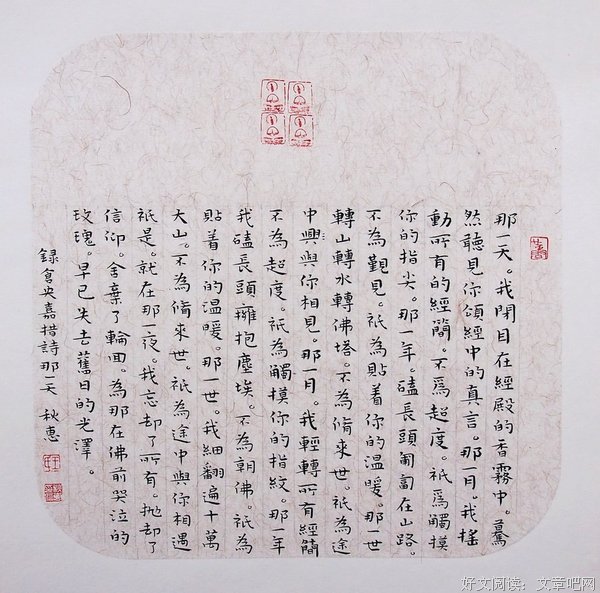 那一天。我閉目在經殿的香霧中。驀
然聽見你頌經中的真言。那一月。我搖
動所有的經簡。不爲超度。祇爲觸摸
你的指尖。那一年。磕長頭匍匐在山路。
不為覲見。祇為貼着你的溫暖。那一世
轉山轉水轉佛塔。不為脩來世。祇為途
中興與你相見。那一月。我輕轉所有經簡
不為超度。祇為觸摸你的指紋。那一年
我磕長頭擁抱塵埃。不為朝佛。祇為
貼着你的溫暖。那一世。我細翻遍十萬
大山。不為脩來世。祇為途中與你相遇
祇是。就在那一夜。我忘却了所有。抛却了
信仰。舍棄了輪回。為那在佛前哭泣的
玫瑰。早已失去舊日的光澤。
錄倉央嘉措詩那一天 秋惠
好文阅读：文章吧网